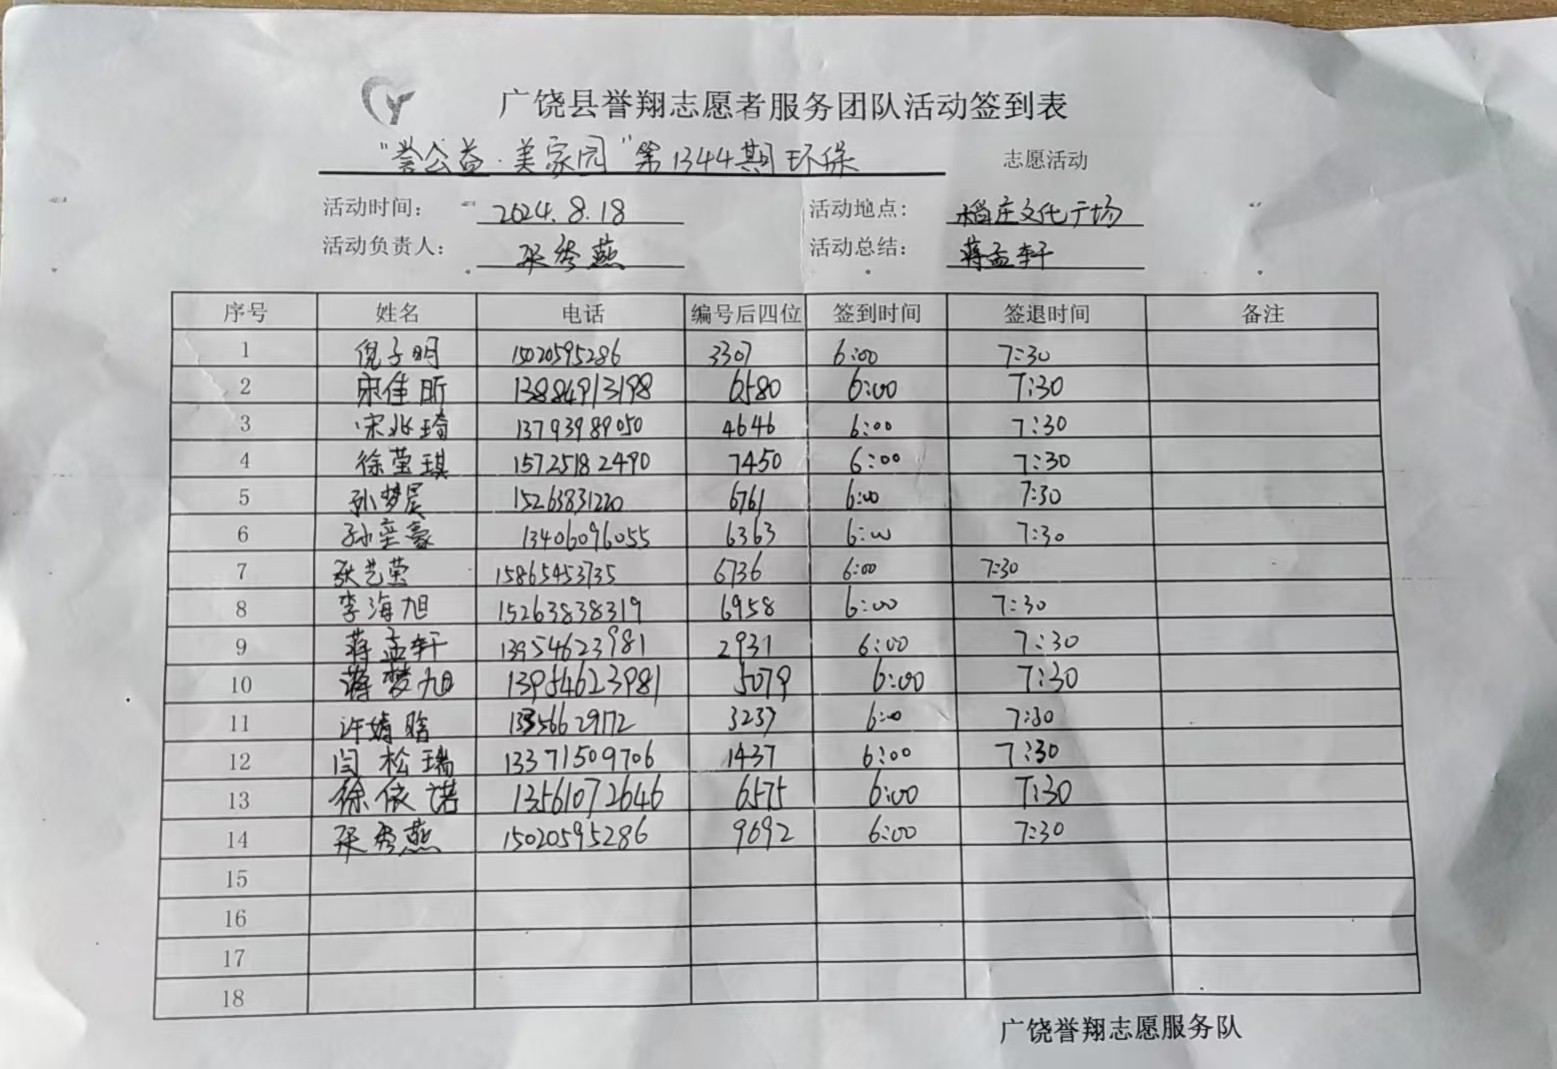 广饶县誉翔志愿者服务团队活动签到表
“誉公益·美家园”第1344期环保 志愿活动
活动时间： 2024.8.18 活动地点： 稻庄文化广场
活动负责人： 张秀燕 活动总结： 蒋孟轩
序号 姓名 电话 编号后四位 签到时间 签退时间 备注
1 倪子明 15020595286 3307 6:00 7:30
2 宋佳昕 13884913198 6580 6:00 7:30
3 宋兆琦 13793989050 4646 6:00 7:30
4 徐莹琪 15725182490 7450 6:00 7:30
5 孙梦昊 15263831220 6761 6:00 7:30
6 孙奕豪 13406096055 6363 6:00 7:30
7 张艺莹 15865453735 6736 6:00 7:30
8 李海旭 15263838319 6958 6:00 7:30
9 蒋孟轩 13954623981 2931 6:00 7:30
10 蒋梦旭 13954623981 5079 6:00 7:30
11 许婧晗 3237 6:00 7:30
12 闫松瑞 13371509706 1437 6:00 7:30
13 徐依诺 13561072646 6575 6:00 7:30
14 张秀燕 15020595286 9692 6:00 7:30
15
16
17
18
广饶誉翔志愿服务队